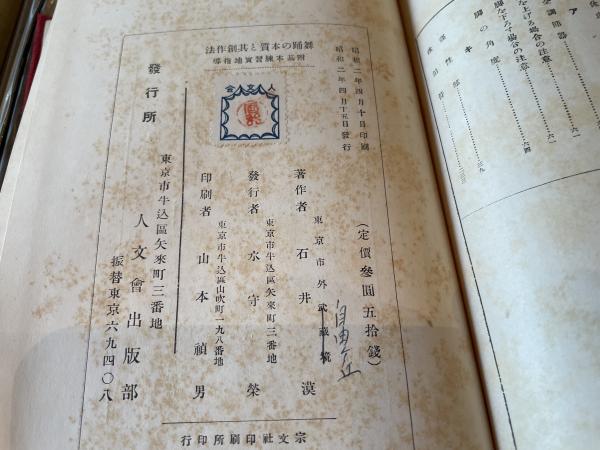 ア
を上げる場合の注意
脚を下ろす場合の注意
脚の角度
キ
六一
六四
昭和二年四月十日印刷
昭和二年四月十五日發行
舞踊の本質と其創作法
附基本練習實地指導
人文會
(定價參圓五拾錢)
東京市外武藏境
自由ヶ丘
著作者 石井漠
東京市牛込區矢來町三番地
發行者 水守榮
東京市牛込區山吹町一九八番地
印刷者 山本禎男
東京市牛込區矢來町三番地
發行所 人文會出版部
振替東京六九四〇八
宗文社印刷所印行